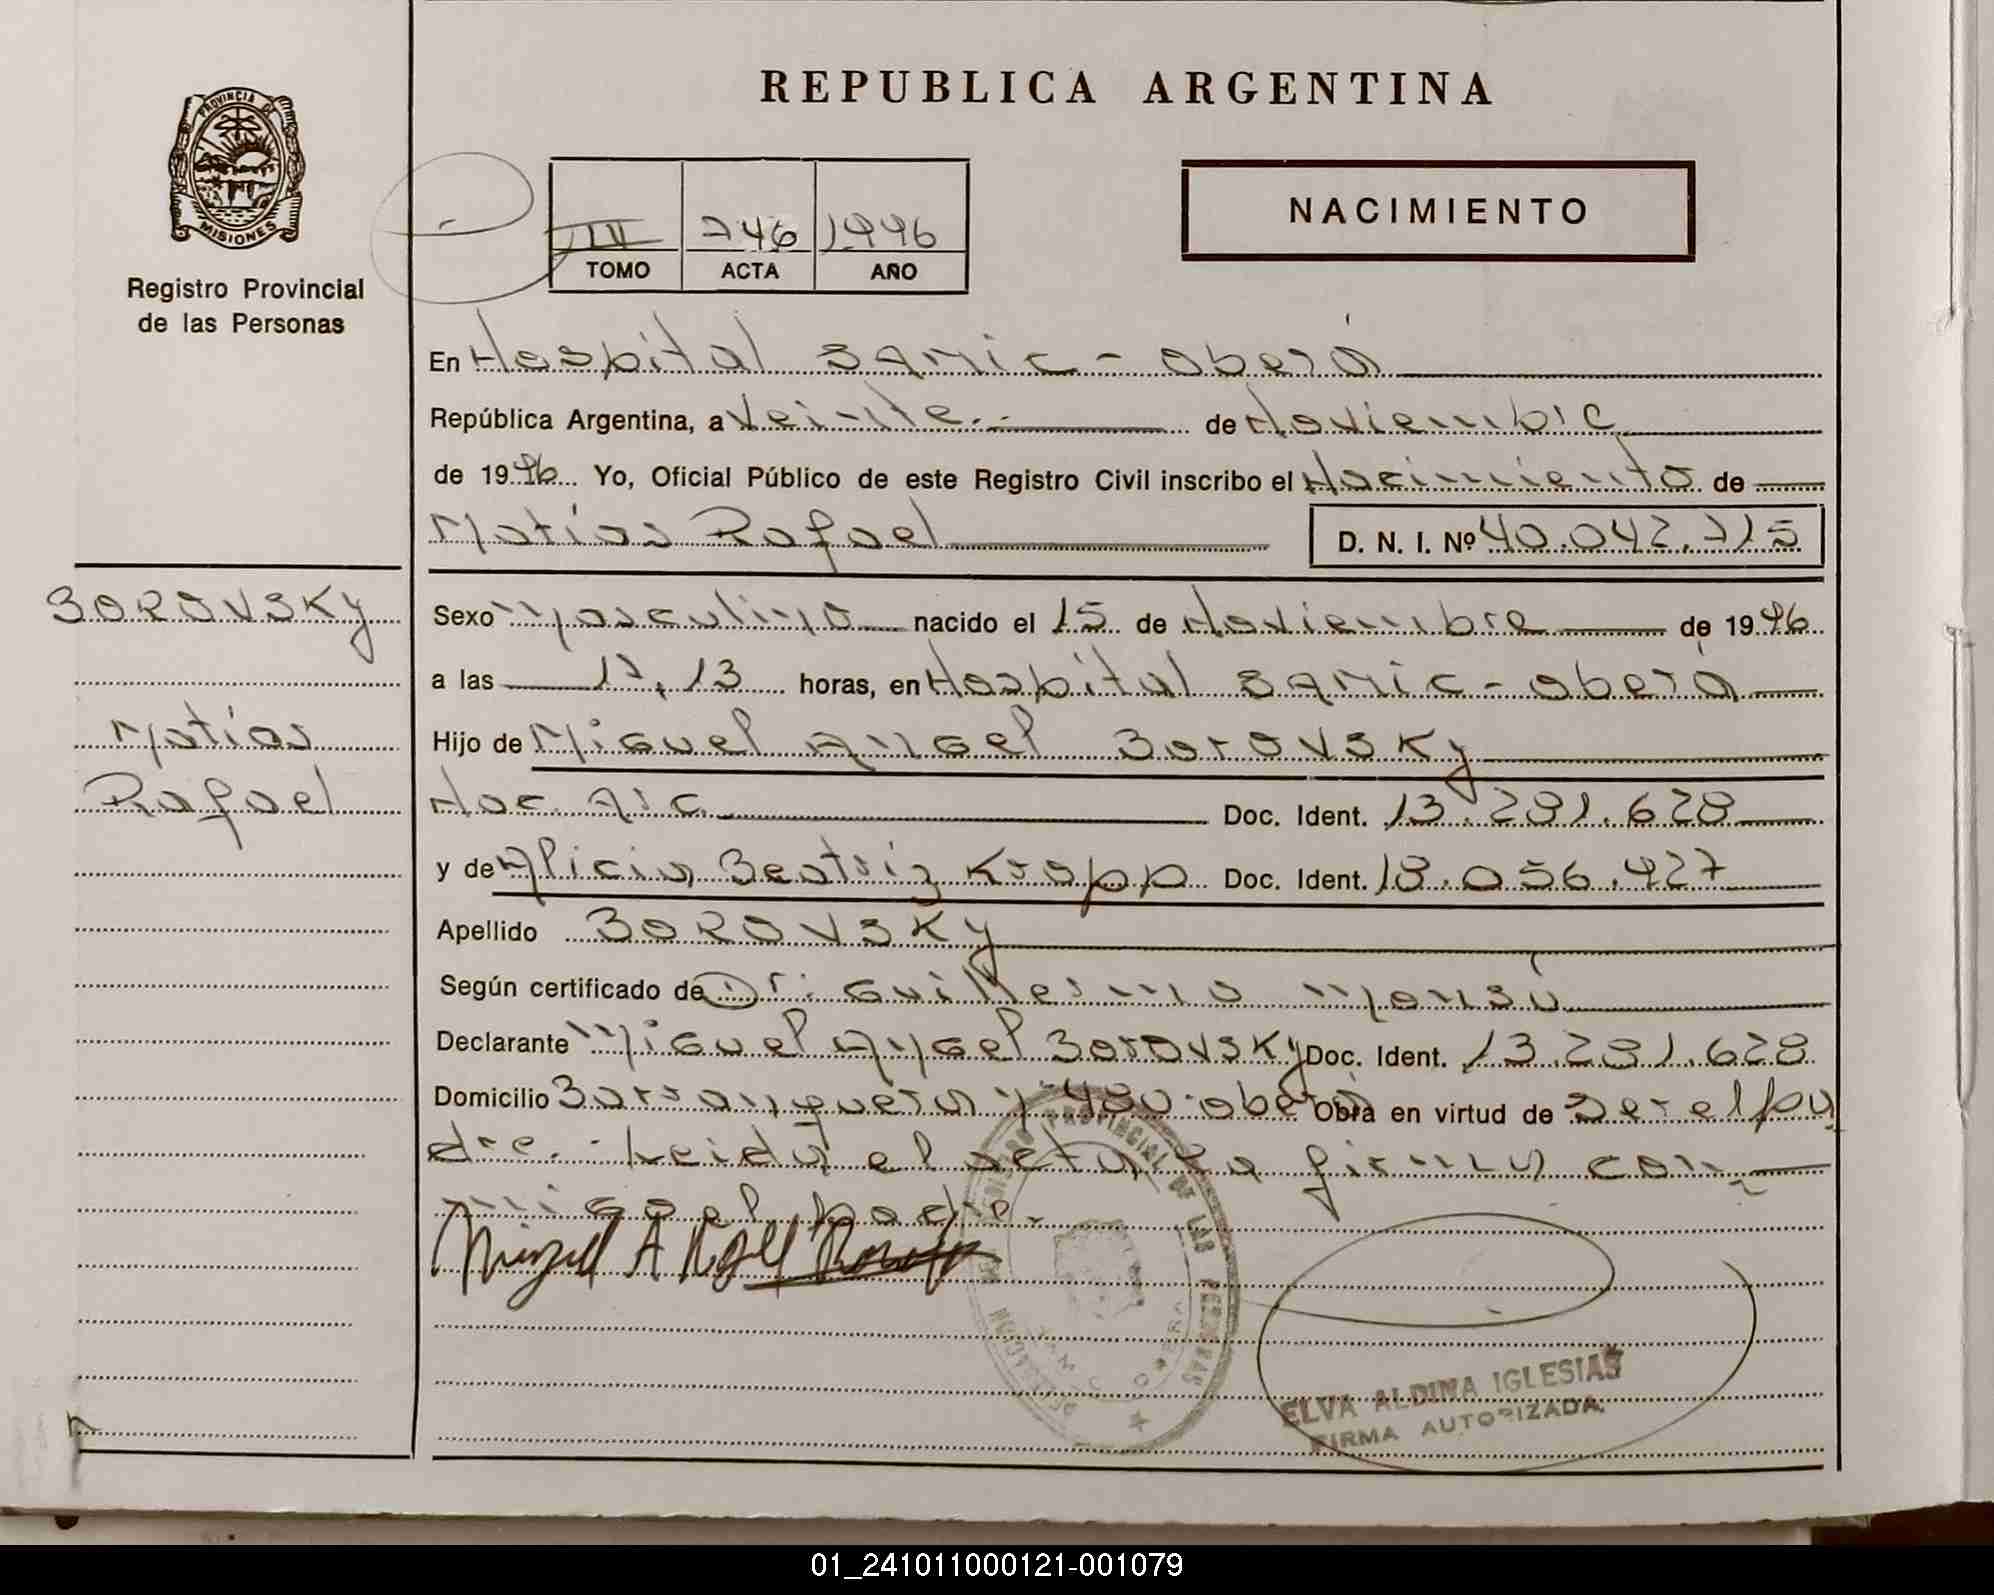 REPUBLICA ARGENTINA
PROVINCIA DE
MISIONES
Registro Provincial
de las Personas
III 746 1996
TOMO ACTA AÑO
NACIMIENTO
En Hospital SAMIC - Oberá
República Argentina, a Veinte.- de Noviembre
de 1996 Yo, Oficial Público de este Registro Civil inscribo el Nacimiento de
Matías Rafael D. N. I. Nº 40.042.715
BOROVSKY
Matías
Rafael
Sexo Masculino nacido el 15 de Noviembre de 1996
a las 17,13 horas, en Hospital SAMIC - Oberá
Hijo de Miguel Angel Borovsky
Nac. Arg. Doc. Ident. 13.281.628
y de Alicia Beatriz Kropp Doc. Ident. 18.056.427
Apellido BOROVSKY
Según certificado de Dr: Guillermo Monsú
Declarante Miguel Angel Borovsky Doc. Ident. 13.281.628
Domicilio Barranqueras y 480 - Oberá Obra en virtud de Ser el pa
dre.- Leida el acta la firma con
migo el padre.
Miguel A Ngel
REGISTRO PROVINCIAL DE LAS PERSONAS
DELEGACION
OBERA
ELVA ALDINA IGLESIAS
FIRMA AUTORIZADA
01_241011000121-001079